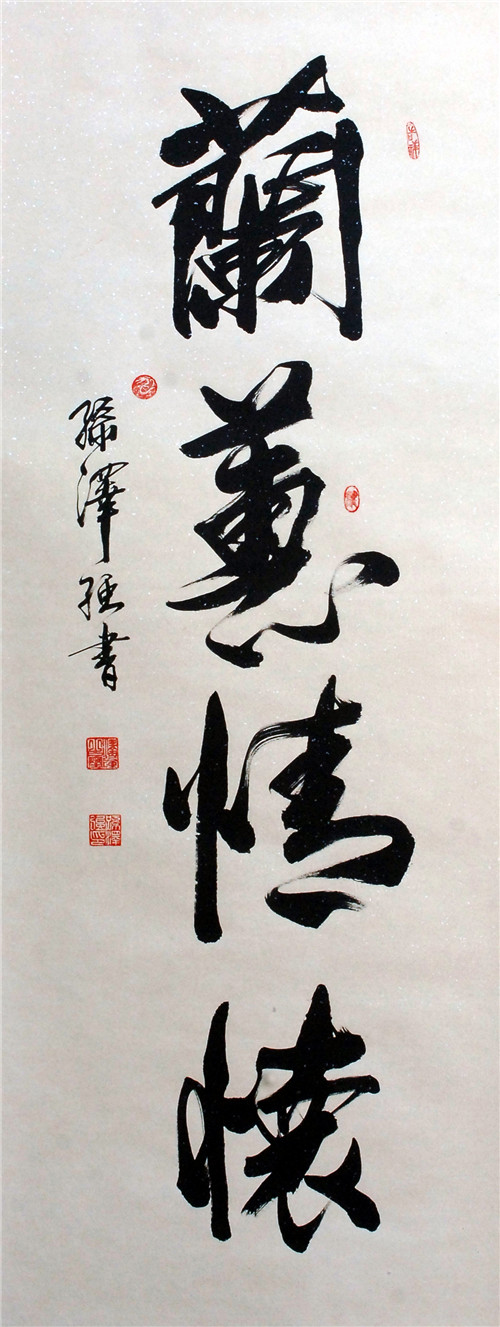 蘭蕙情懷
孫澤強書